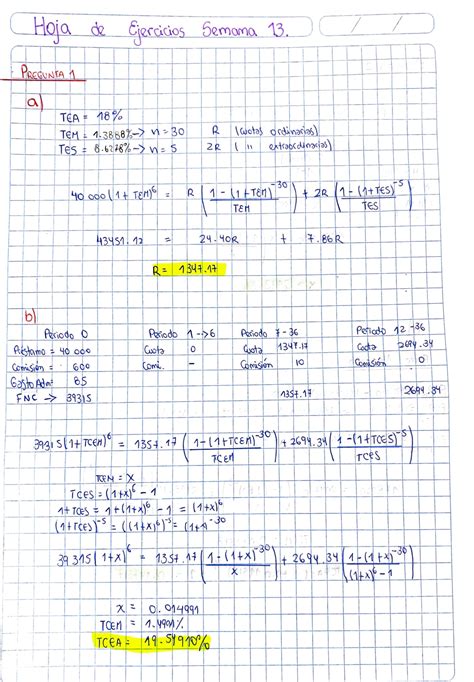 Hoja de Ejercicios Semana 13.
/ /
PREGUNTA 1
a)
TEA = 18%
TEM = 1.3888% -> n = 30 R (cuotas ordinarias)
TES = 8.6278% -> n = 5 2R ( " extraordinarias)
40 000 (1 + TEM)^6 = R ( 1 - (1+TEM)^-30 / TEM ) + 2R ( 1 - (1+TES)^-5 / TES )
43451.12 = 24.40R + 7.86R
R = 1347.17
b)
Periodo 0 Periodo 1 -> 6 Periodo 7 - 36 Periodo 12 - 36
Préstamo = 40 000 Cuota 0 Cuota 1347.17 Cuota 2694.34
Comisión = 600 Comi. - Comisión 10 Comisión 0
Gasto Adm = 85
FNC -> 39315 1357.17 2694.34
39315 (1+TCEM)^6 = 1357.17 ( 1 - (1+TCEM)^-30 / TCEM ) + 2694.34 ( 1 - (1+TCES)^-5 / TCES )
TCEM = X
TCES = (1+x)^6 - 1
1 + TCES = 1 + (1+x)^6 - 1 = (1+x)^6
(1+TCES)^-5 = ((1+x)^6)^-5 = (1+x)^-30
39315 (1+x)^6 = 1357.17 ( 1 - (1+x)^-30 / x ) + 2694.34 ( 1 - (1+x)^-30 / (1+x)^6 - 1 )
x = 0.014991
TCEM = 1.4991%
TCEA = 19.54910%